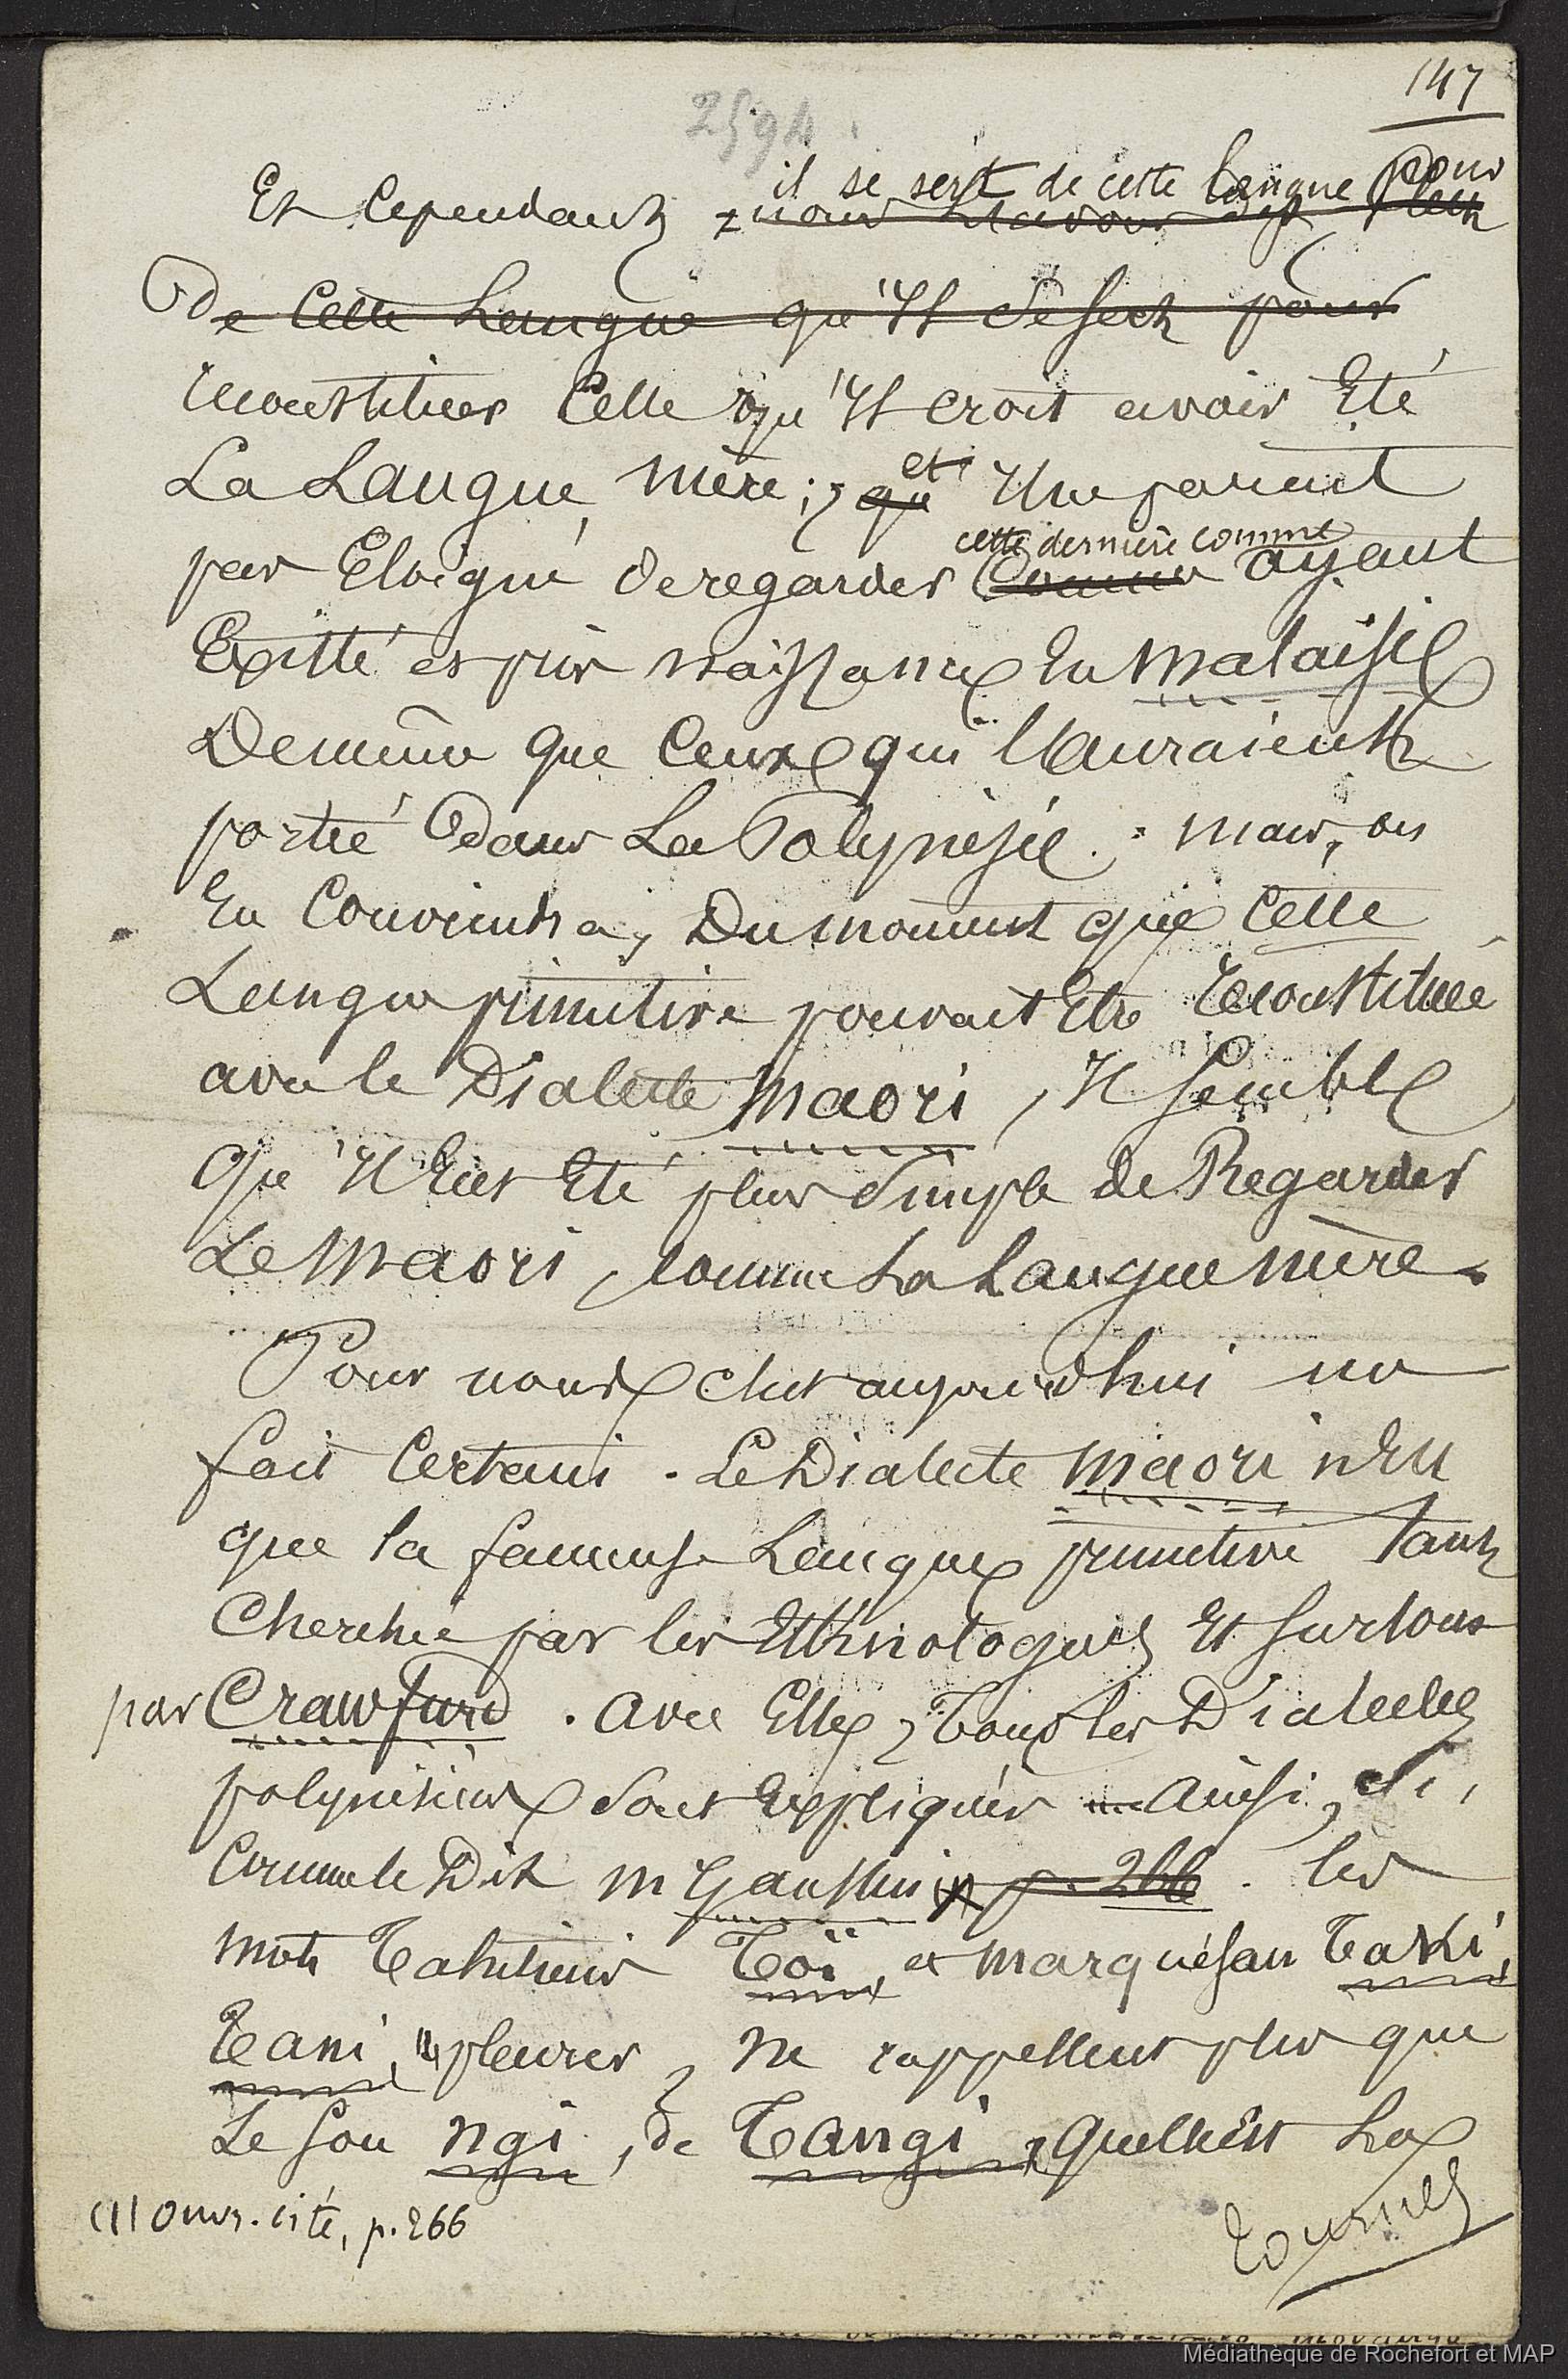 147
2594
il se sert de cette langue pour
Et Cependant, nous
De Cette Langue qu'Il se sert pour
reconstituer Celle qu'Il croit avoir Eté
La Langue mère ; et que Il ne parait
pas Eloigné de regarder cette dernière comme Comme ayant
Existé et pris naissance En Malaisie
De même que Ceux qui l'auraient
portée Dans La Polynésie ; mais, on
En Conviendra, Du moment que Cette
Langue primitive pouvait Etre reconstituée
avec le Dialecte Maori, Il semble
qu'Il Eut Eté plus simple de Regarder
Le Maori, comme La Langue mère.
Pour nous, c'est aujourd'hui un
fait Certain. Le Dialecte Maori n'est
que la fameuse Langue primitive tant
Cherchée par les Ethnologues Et surtout
par Crawfurd. avec Elle, Tous les Dialectes
polynésiens sont Expliqués ainsi, si,
Comme le Dit M Gaussin (1) p. 266. les
mots Tahitiens Toï, et marquésan Taki,
Tani, pleurer, ne rappellent plus que
Le son ngi, de Tangi, quelle est La
(1) Ouvr. cité, p. 266
tournez
Médiathèque de Rochefort et MAP